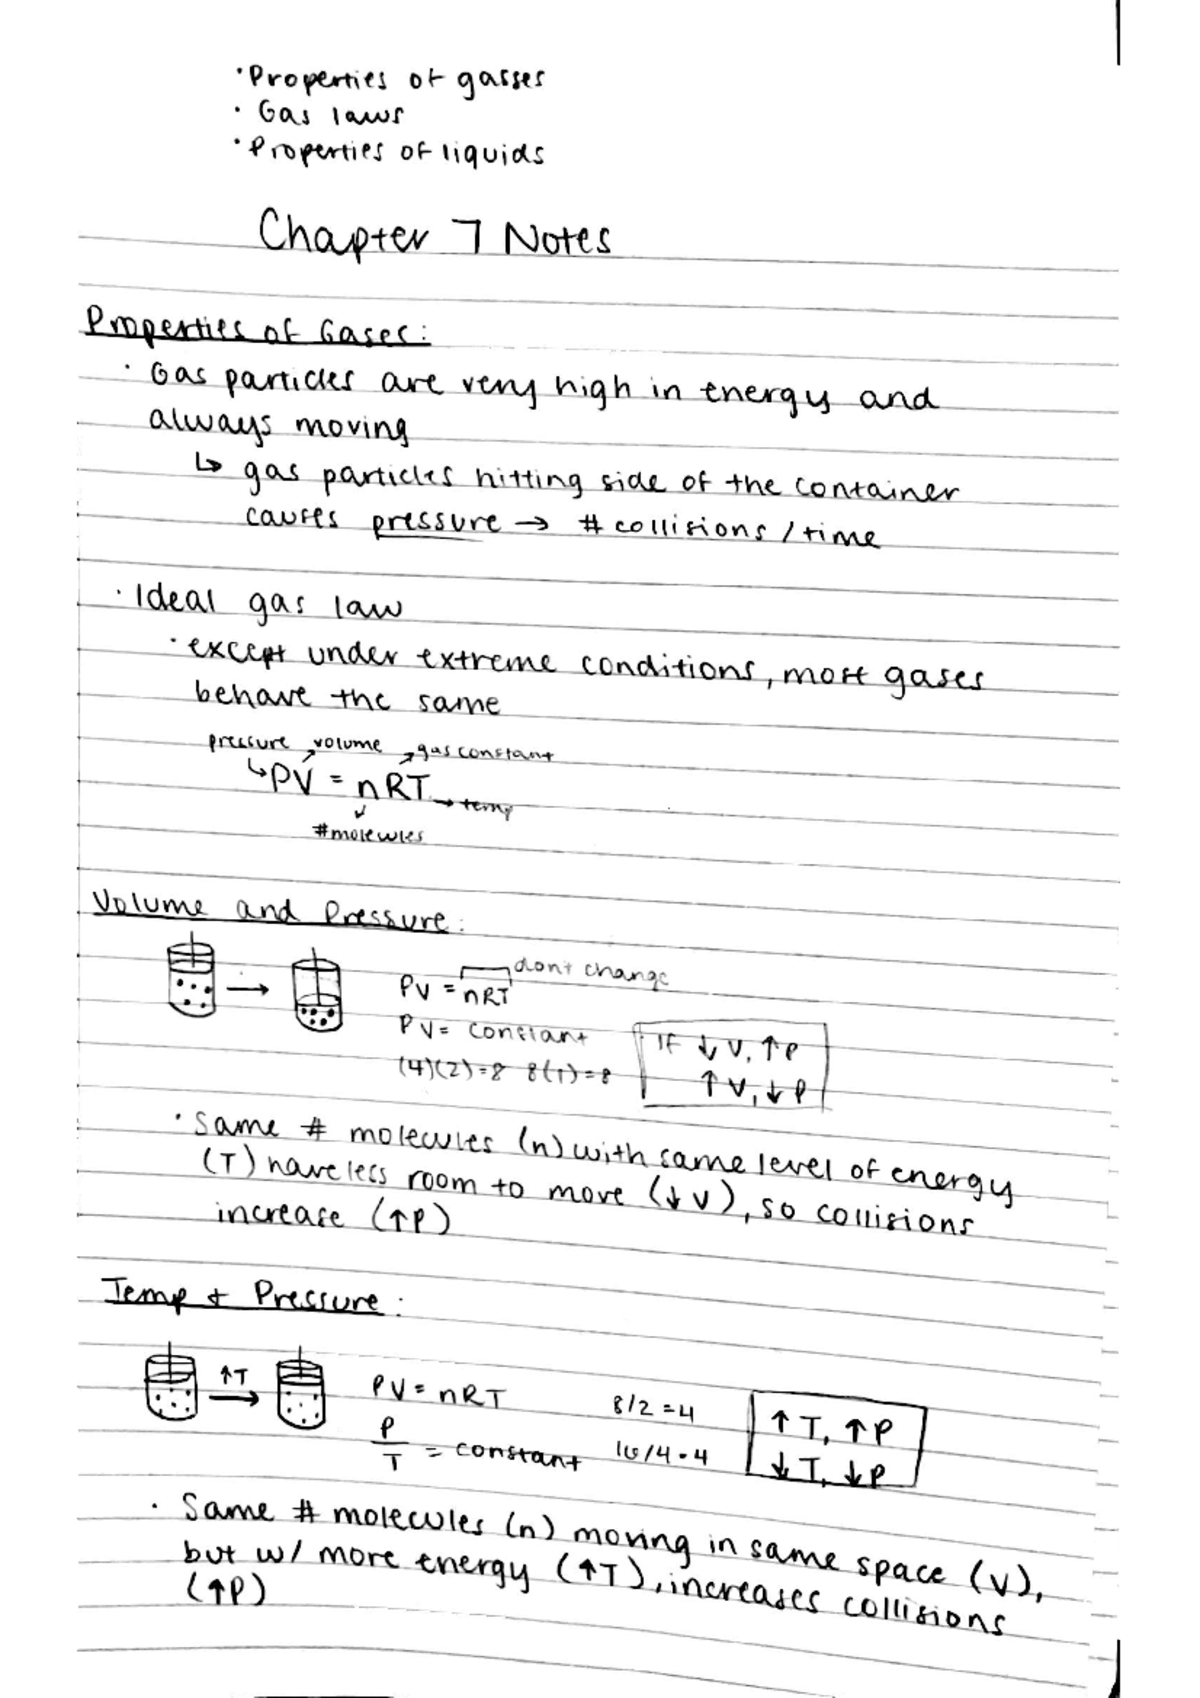 • Properties of gasses
• Gas laws
• Properties of liquids
Chapter 7 Notes
Properties of Gases:
• Gas particles are very high in energy and
always moving
↳ gas particles hitting side of the container
causes pressure → # collisions / time
• Ideal gas law
• except under extreme conditions, most gases
behave the same
pressure volume gas constant
↳ PV = nRT → temp
# molecules
Volume and Pressure:
don't change
PV = nRT
PV = constant
(4)(2)=8 8(1)=8
If ↓V, ↑P
↑V, ↓P
• Same # molecules (n) with same level of energy
(T) have less room to move (↓V), so collisions
increase (↑P)
Temp & Pressure:
↑T
PV = nRT
P/T = constant
8/2 = 4
16/4 = 4
↑T, ↑P
↓T, ↓P
• Same # molecules (n) moving in same space (V),
but w/ more energy (↑T), increases collisions
(↑P)